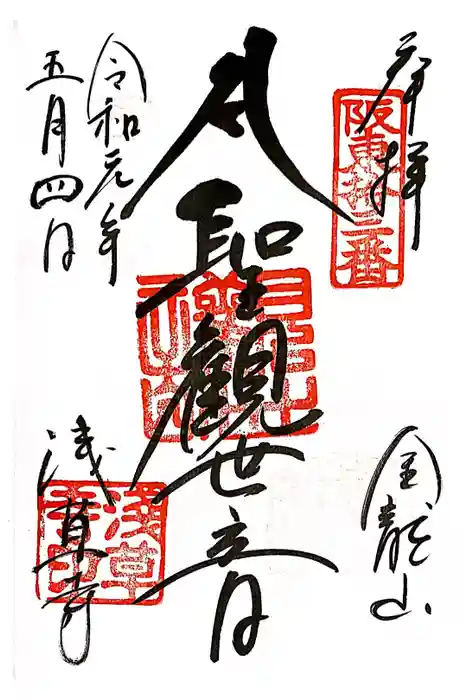 奉拝
阪東拾三番
金龍山
聖観世音
令和元年
五月四日
浅草寺
浅草寺印